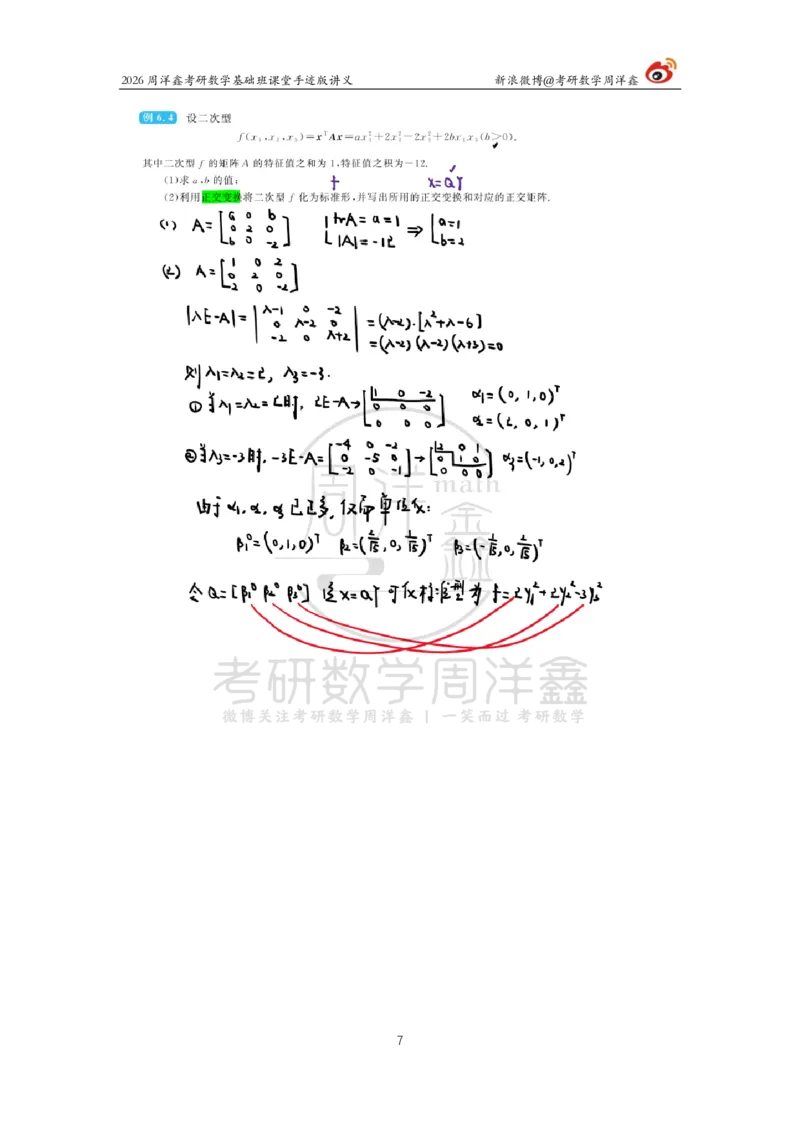 2026 周洋鑫考研数学基础班课堂手迹版讲义 新浪微博@考研数学周洋鑫
例 6.4 设二次型
f(x₁,x₂,x₃)=xᵀAx=ax₁²+2x₂²-2x₃²+2bx₁x₃(b>0),
其中二次型 f 的矩阵 A 的特征值之和为 1,特征值之积为-12.
(1)求 a,b 的值; f x=QY
(2)利用正交变换将二次型 f 化为标准形,并写出所用的正交变换和对应的正交矩阵.
(1) A=[a 0 b; 0 2 0; b 0 -2] { trA=a=1, |A|=-12 ⇒ { a=1, b=2
(2) A=[1 0 2; 0 2 0; 2 0 -2]
|λE-A|=|λ-1 0 -2; 0 λ-2 0; -2 0 λ+2| =(λ-2)·[λ²+λ-6]
=(λ-2)(λ-2)(λ+3)=0
则 λ₁=λ₂=2, λ₃=-3.
① 当λ₁=λ₂=2时, 2E-A→[1 0 -2; 0 0 0; 0 0 0] α₁=(0,1,0)ᵀ
α₂=(2,0,1)ᵀ
② 当λ₃=-3时, -3E-A=[-4 0 -2; 0 -5 0; -2 0 -1]→[2 0 1; 0 1 0; 0 0 0] α₃=(-1,0,2)ᵀ
由于 α₁,α₂,α₃ 已正交, 仅需单位化:
β₁⁰=(0,1,0)ᵀ β₂=(2/√5,0,1/√5)ᵀ β₃=(-1/√5,0,2/√5)ᵀ
令 Q=[β₁⁰ β₂⁰ β₃⁰] 经 x=QY 可化 f=2y₁²+2y₂²-3y₃²
周洋鑫
math
考研数学周洋鑫
微博关注考研数学周洋鑫 | 一笑而过 考研数学
7